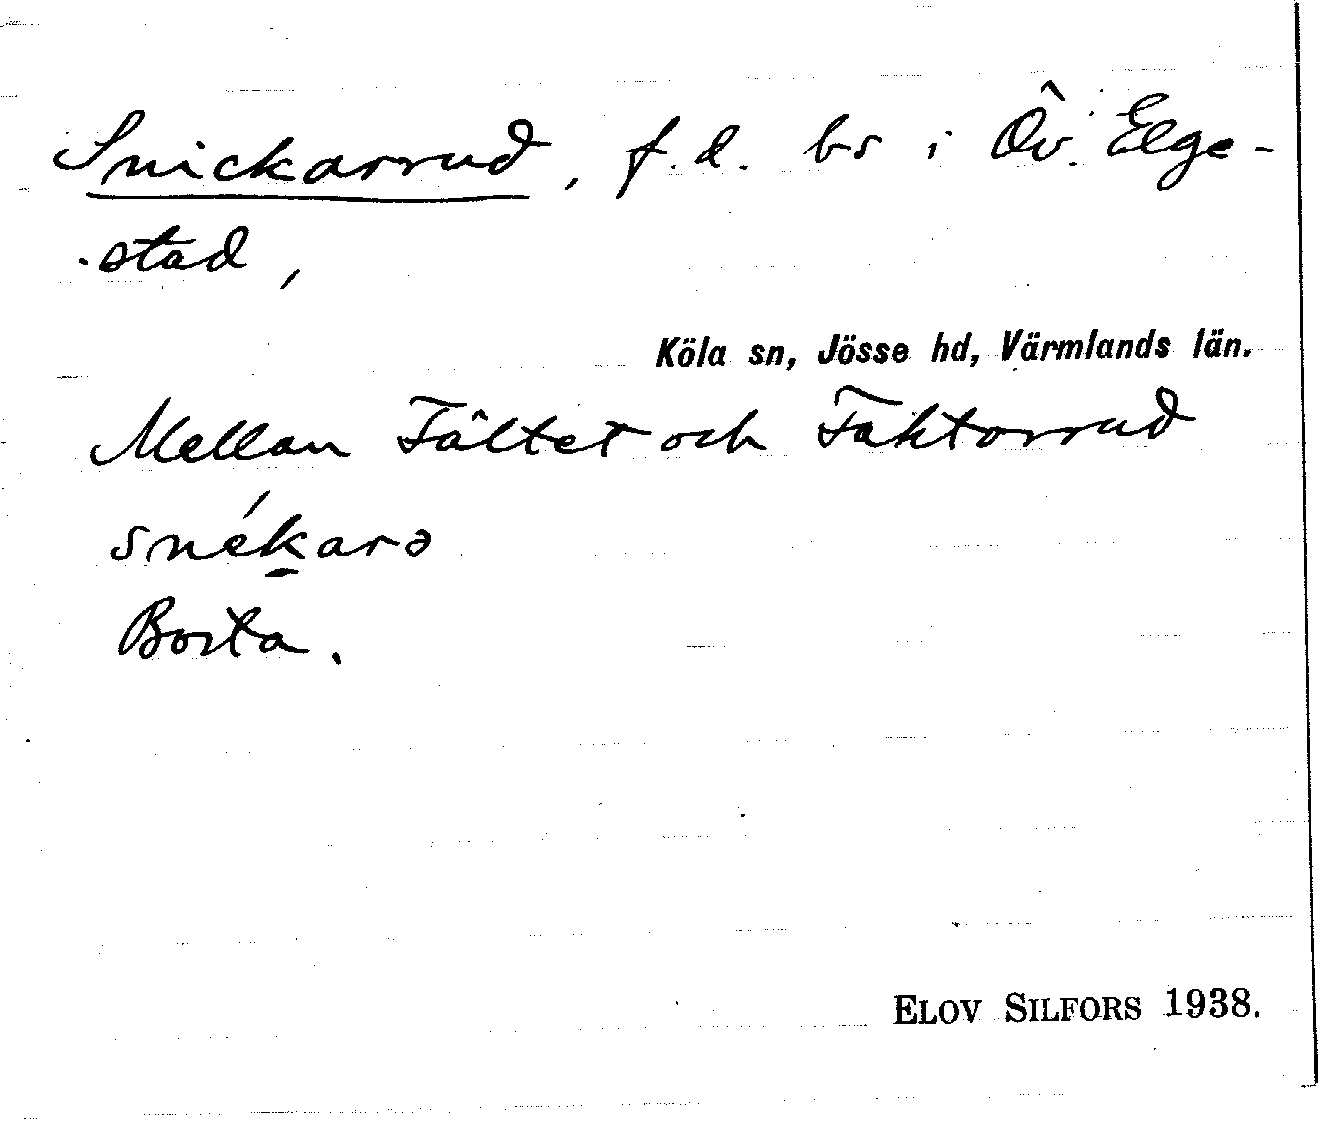 Snickarrud, f.d. bs i Öv. Elge-
stad,
Köla sn, Jösse hd, Värmlands län.
Mellan Fältet och Faktorrud
snékarə
Borta.
ELOV SILFORS 1938.